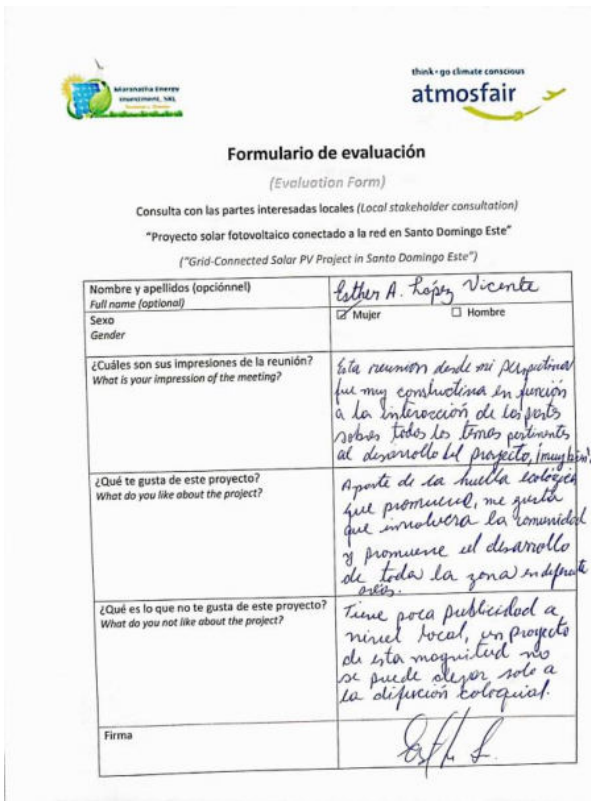 Maranatha Energy
Investment, SRL
think • go climate conscious
atmosfair
Formulario de evaluación
(Evaluation Form)
Consulta con las partes interesadas locales (Local stakeholder consultation)
"Proyecto solar fotovoltaico conectado a la red en Santo Domingo Este"
("Grid-Connected Solar PV Project in Santo Domingo Este")
Nombre y apellidos (opciónnel)
Full name (optional)
Esther A. López Vicente
Sexo
Gender
Mujer
Hombre
¿Cuáles son sus impresiones de la reunión?
What is your impression of the meeting?
Esta reunion desde mi perspectiva
fue muy constructiva en función
a la interacción de las partes
sobre todos los temas pertinentes
al desarrollo del proyecto, ¡muy bien!
¿Qué te gusta de este proyecto?
What do you like about the project?
Aporte de la huella ecológica
que promueve, me gusta
que involucra la comunidad
y promueve el desarrollo
de toda la zona en diferente
¿Qué es lo que no te gusta de este proyecto?
What do you not like about the project?
Tiene poca publicidad a
nivel local, un proyecto
de esta magnitud no
se puede dejar solo a
la difución coloquial.
Firma